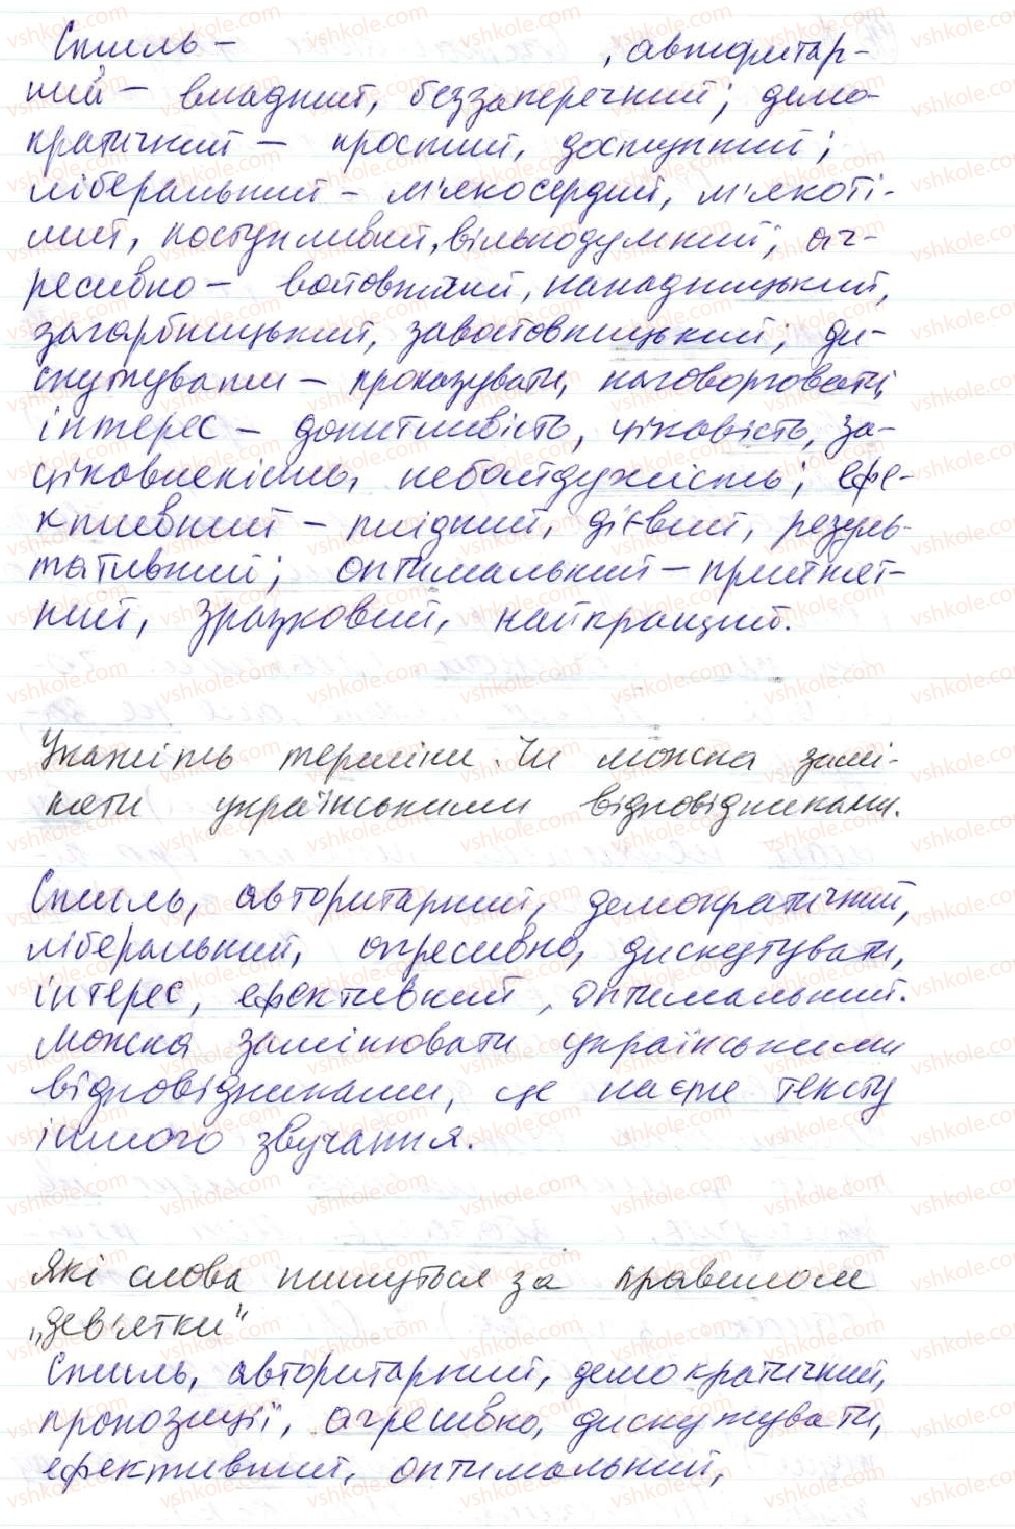 Стиль – , авторитар-
ний – владний, беззаперечний; демо-
кратичний – простий, доступний;
ліберальний – м'якосердий, м'якоті-
лий, поступливий, вільнодумний; аг-
ресивно – войовничий, нападницький,
загарбницький, завойовницький; ди-
скутувати – проказувати, наговорювати;
інтерес – допитливість, цікавість, за-
цікавленість, небайдужість; ефе-
ктивний – плідний, дієвий, резуль-
тативний; оптимальний – прийнят-
ний, зразковий, найкращий.
Укажіть терміни. Чи можна замі-
няти українськими відповідниками.
Стиль, авторитарний, демократичний,
ліберальний, агресивно, дискутувати,
інтерес, ефективний, оптимальний.
Можна замінювати українськими
відповідниками, це надає тексту
іншого звучання.
Які слова пишуться за правилом
„дев'ятки"
Стиль, авторитарний, демократичний,
пропозиції, агресивно, дискутувати,
ефективний, оптимальний,